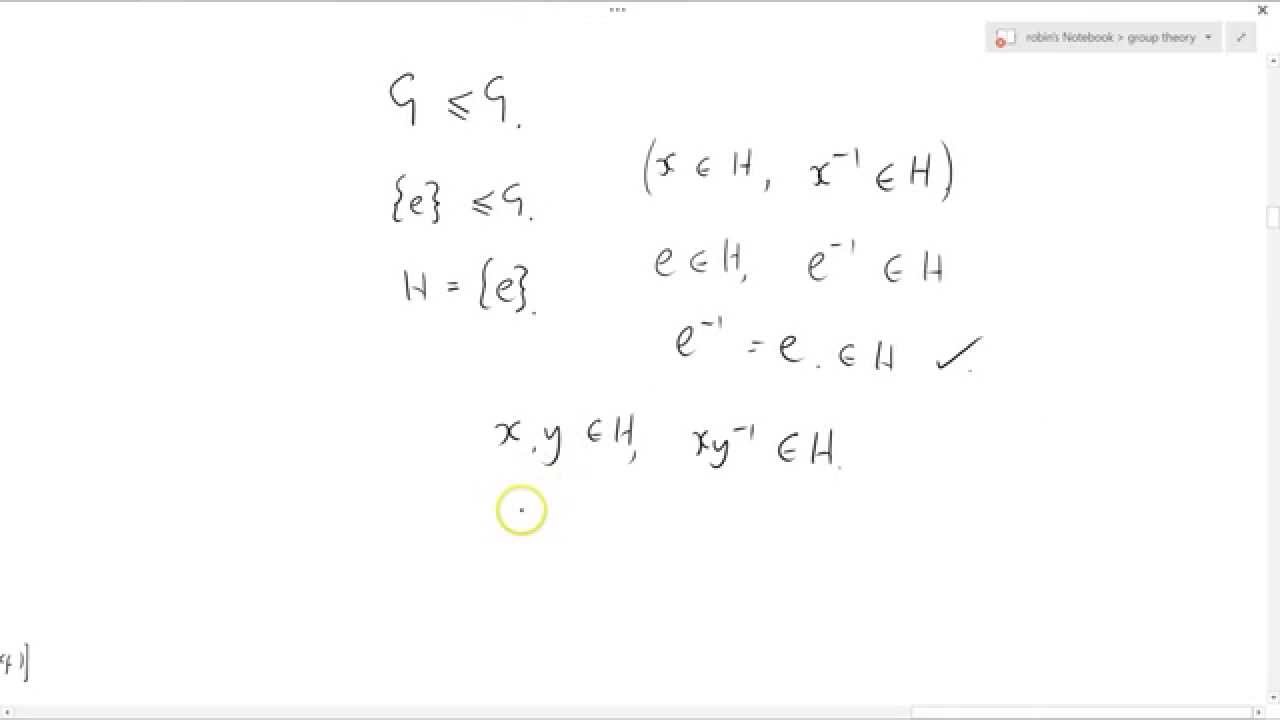 robin's Notebook > group theory
G ⩽ G.
(x ∈ H, x⁻¹ ∈ H)
{e} ⩽ G.
e ∈ H, e⁻¹ ∈ H
H = {e}.
e⁻¹ = e. ∈ H ✓.
x, y ∈ H, xy⁻¹ ∈ H.